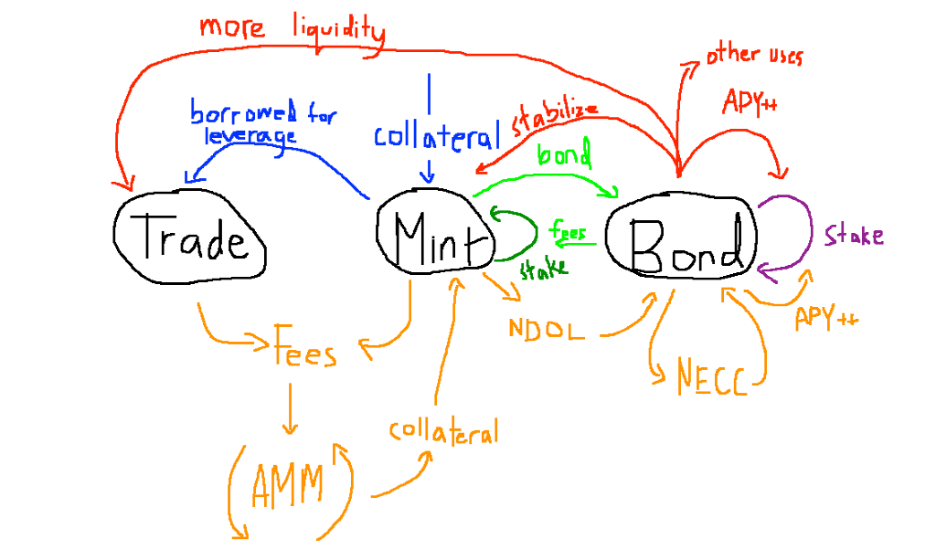 more liquidity
other uses
APY++
borrowed for
leverage
collateral
stabilize
bond
Trade
Mint
fees
Bond
stake
stake
NDOL
APY++
Fees
NECC
collateral
AMM